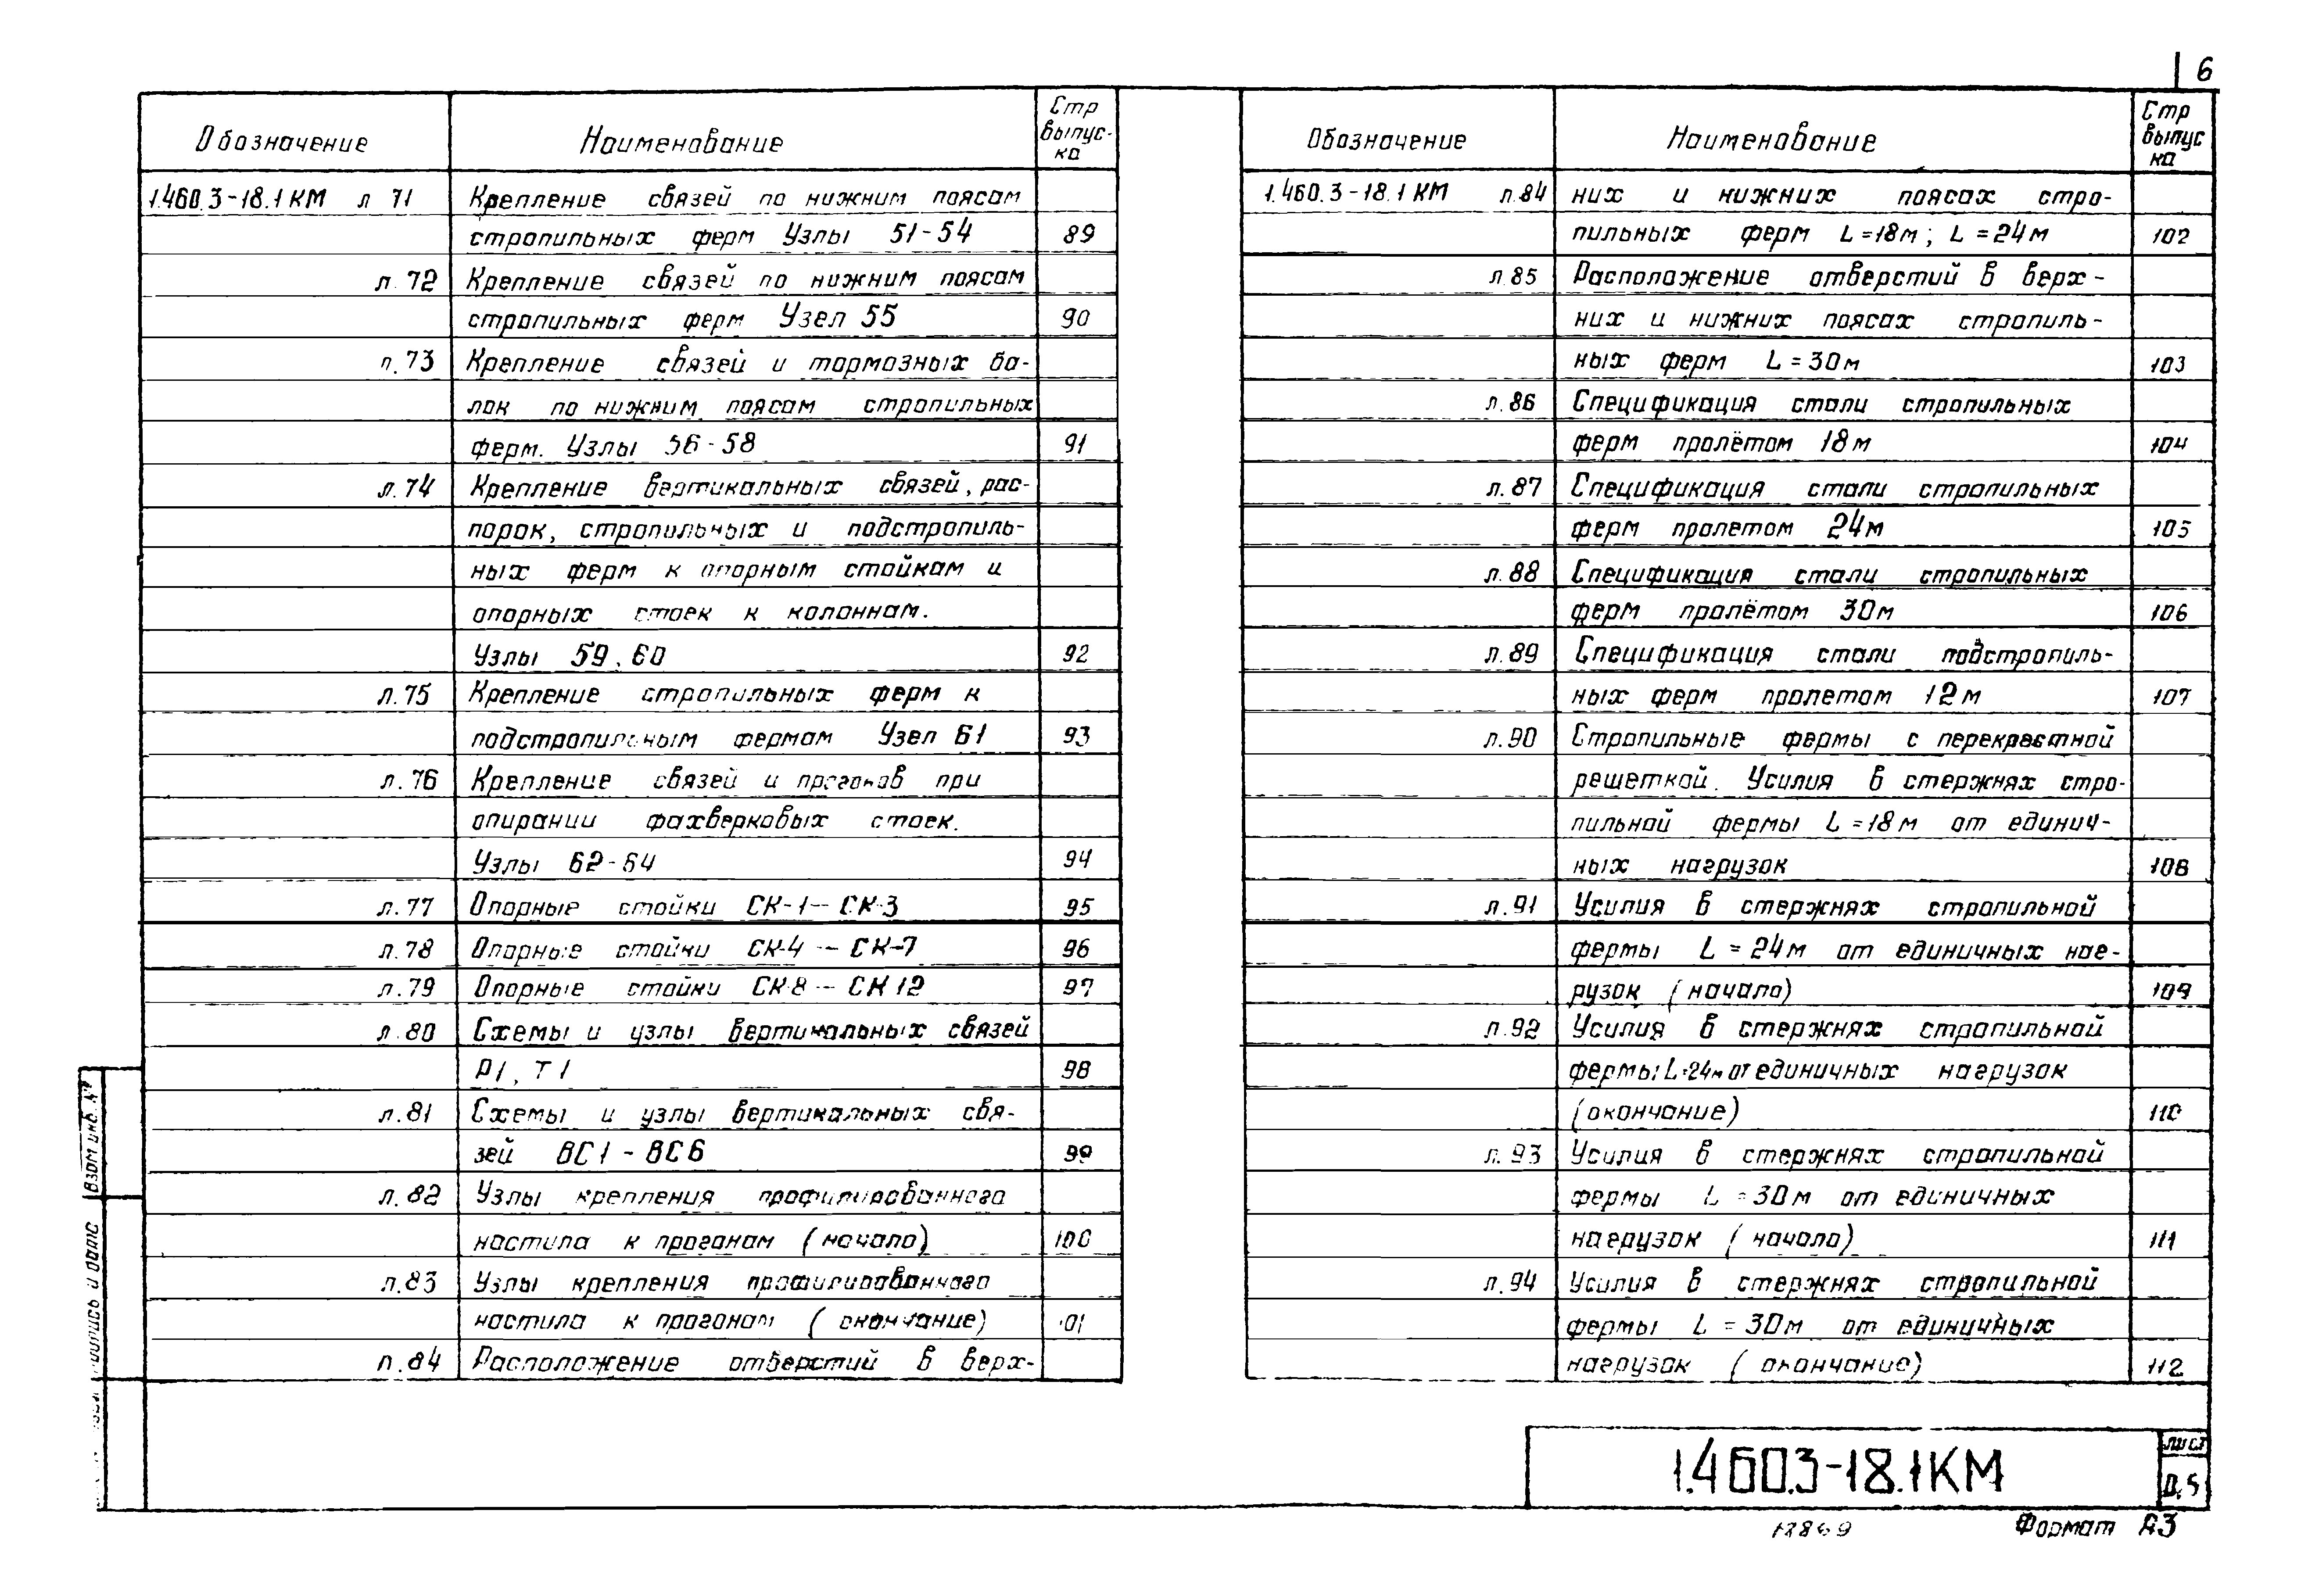 6
Обозначение Наименование Стр выпус-ка
1.460.3-18.1 КМ л 71 Крепление связей по нижним поясам
стропильных ферм Узлы 51-54 89
л. 72 Крепление связей по нижним поясам
стропильных ферм Узел 55 90
л. 73 Крепление связей и тормозных ба-
лок по нижним поясам стропильных
ферм. Узлы 56-58 91
л. 74 Крепление вертикальных связей, рас-
порок, стропильных и подстропиль-
ных ферм к опорным стойкам и
опорных стоек к колоннам.
Узлы 59, 60 92
л. 75 Крепление стропильных ферм к
подстропильным фермам Узел 61 93
л. 76 Крепление связей и прогонов при
опирании фахверковых стоек.
Узлы 62-64 94
л. 77 Опорные стойки СК-1 — СК-3 95
л. 78 Опорные стойки СК-4 — СК-7 96
л. 79 Опорные стойки СК-8 — СК 12 97
л. 80 Схемы и узлы вертикальных связей
Р1, Т1 98
л. 81 Схемы и узлы вертикальных свя-
зей ВС1 - ВС6 99
л. 82 Узлы крепления профилированного
настила к прогонам (начало) 100
л. 83 Узлы крепления профилированного
настила к прогонам (окончание) 101
л. 84 Расположение отверстий в верх-
Обозначение Наименование Стр выпус ка
1.460.3-18.1 КМ л. 84 них и нижних поясах стро-
пильных ферм L=18м; L=24м 102
л. 85 Расположение отверстий в верх-
них и нижних поясах стропиль-
ных ферм L=30м 103
л. 86 Спецификация стали стропильных
ферм пролётом 18м 104
л. 87 Спецификация стали стропильных
ферм пролетом 24м 105
л. 88 Спецификация стали стропильных
ферм пролётом 30м 106
л. 89 Спецификация стали подстропиль-
ных ферм пролетом 12м 107
л. 90 Стропильные фермы с перекрестной
решеткой. Усилия в стержнях стро-
пильной фермы L=18м от единич-
ных нагрузок 108
л. 91 Усилия в стержнях стропильной
фермы L = 24м от единичных наг-
рузок (начало) 109
л. 92 Усилия в стержнях стропильной
фермы L=24м от единичных нагрузок
(окончание) 110
л. 93 Усилия в стержнях стропильной
фермы L = 30м от единичных
нагрузок (начало) 111
л. 94 Усилия в стержнях стропильной
фермы L = 30м от единичных
нагрузок (окончание) 112
Взам инв. №
подпись и дата
1.460.3-18.1КМ
лист
0.5
Формат А3